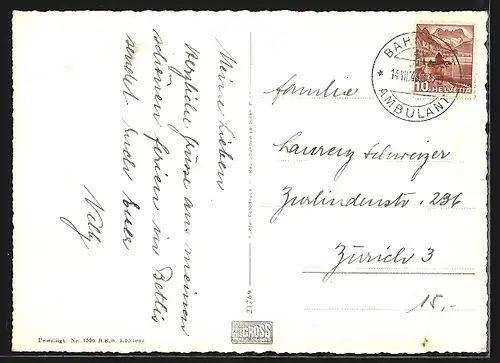 Meine Lieben
Herzliche Grüsse aus meinen
schönen Ferien in Bettlis
sendet Euch Euer
Nelly
Familie
Laurenz Schweizer
Zurlindenstr. 236
Zürich 3
15,-
BAH
AMBULANT
14.VII.
10 HELVETIA
21769
GROSS
Bewilligt. Nr. 1536 B.R.B. 3.10.1939